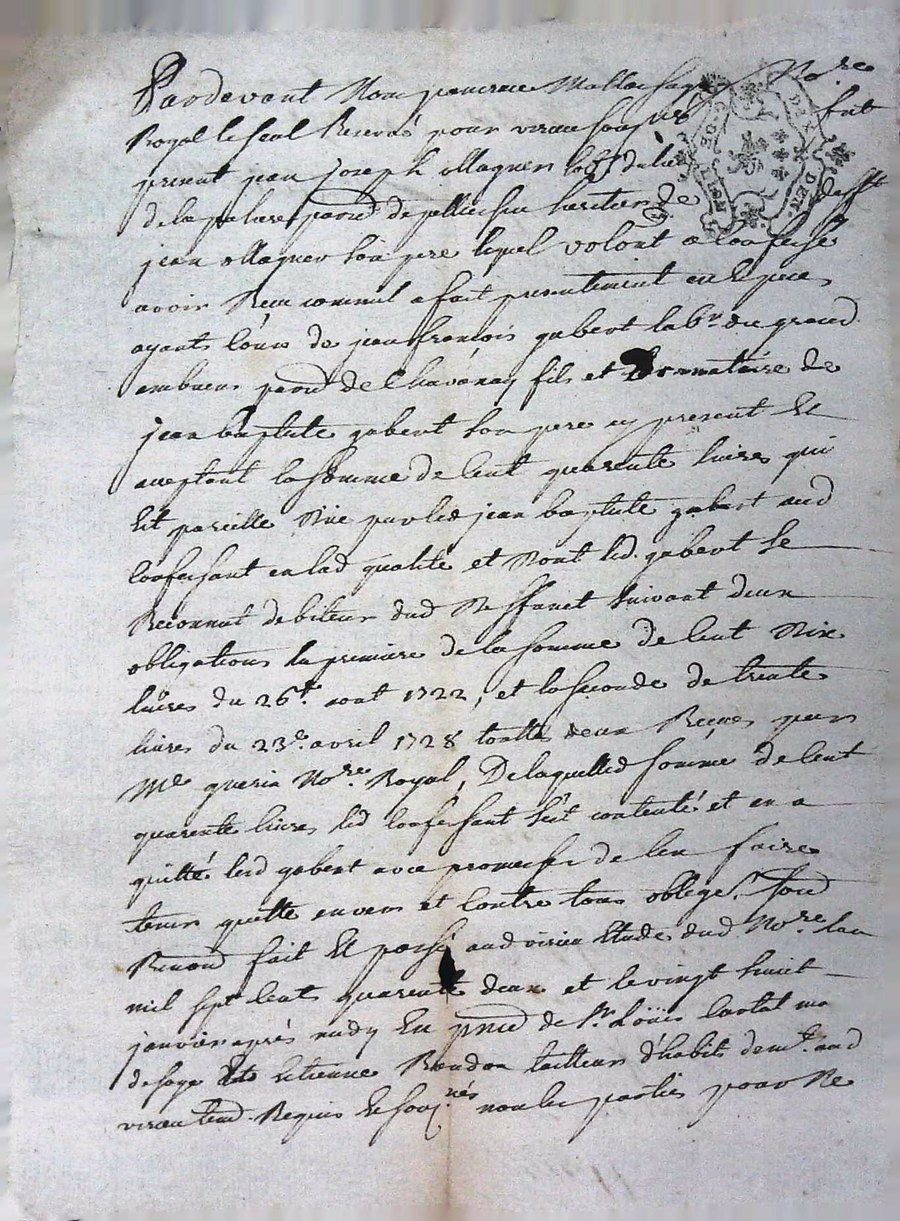 Pardevant Nous Nore
Royal le seul Reservé pour virieu soussigné fut
present jean joseph Magnen du lieu
de la parois. de pellussin heritier de defft
jean Magnen son pere lequel volont a confessé
avoir Reçu comme a fait presentement en Especes
ayants cours de jean françois gabert labr. du grand
embuens paroisse de Chavanay fils et Donnataire de
jean baptiste gabert son pere icy present Et
acceptant la somme de Cent quarente livres qui
Est pareille düe par led jean baptiste gabert aud
confessant en lad qualité et dont led. gabert se
Reconnut debiteur dud deffunct suivant deux
obligations la premiere de la somme de Cent dix
livres du 26e. aout 1722, et la seconde de trente
livres du 23e. avril 1728 toutte deux Reçues par
Me guerin Nore. Royal, De laquelled somme de Cent
quarente livres led confessant s'est contenté et en a
quitté led gabert avec promesse de l'en faire
tenir quitte envers et Contre tous oblige. soud
Renond fait Et passé aud virieu Etude dud Nore. l'an
mil sept Cents quarente deux et le vingt huict
janvier après midy En pnce de Sr. Loüis
Etienne tailleur d'habits demt. aud
virieu tem. Requis Et soussignés non les parties pour ne